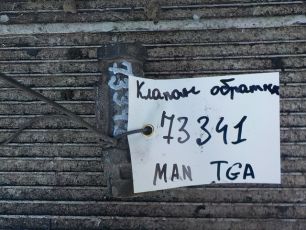 Клапан обратны
73341
MAN TGA